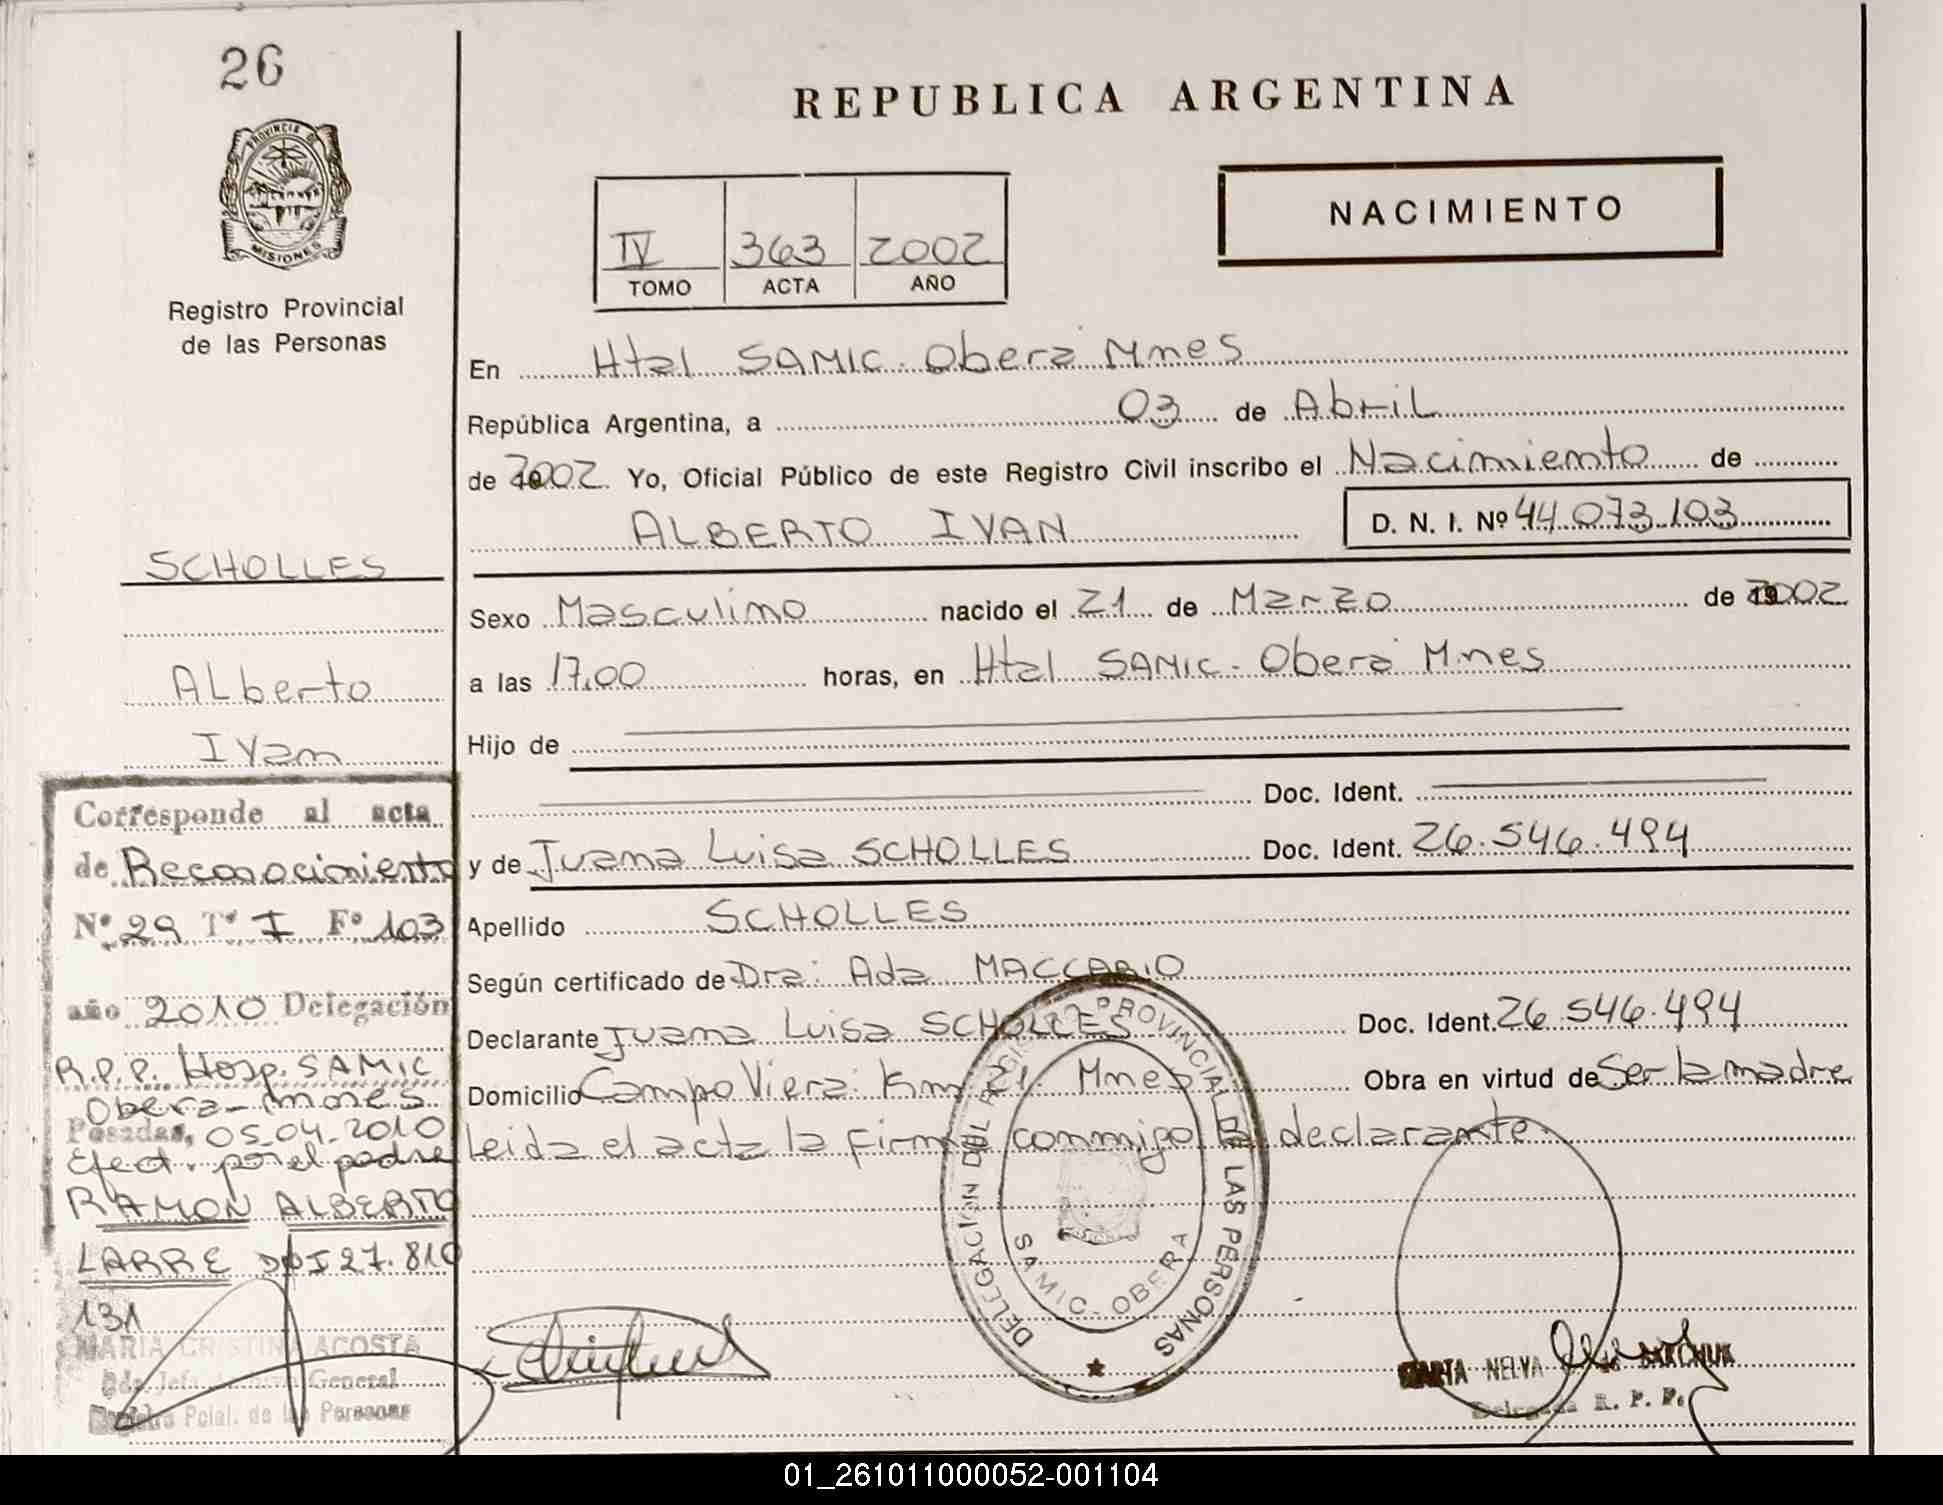 26
PROVINCIA DE
MISIONES
Registro Provincial
de las Personas
REPUBLICA ARGENTINA
NACIMIENTO
IV 363 2002
TOMO ACTA AÑO
En Htal SAMIC - Oberá Mnes
República Argentina, a 03 de Abril
de 2002 Yo, Oficial Público de este Registro Civil inscribo el Nacimiento de
ALBERTO IVAN D. N. I. Nº 44.073.103
Sexo Masculino nacido el 21 de Marzo de 2002
a las 17,00 horas, en Htal SAMIC - Oberá Mnes
Hijo de
Doc. Ident.
y de Juana Luisa SCHOLLES Doc. Ident. 26.546.494
Apellido SCHOLLES
Según certificado de Dra: Ada MACCABIO
Declarante Juana Luisa SCHOLLES Doc. Ident. 26.546.494
Domicilio Campo Viera Km 21. Mnes Obra en virtud de Ser la madre
Leida el acta la firma conmigo la declarante
SCHOLLES
Alberto
Ivan
Corresponde al acta
de Reconocimiento
Nº 29 Tº I Fº 103
año 2010 Delegación
R.P.P. Hosp. SAMIC
Obera - Mnes
Posadas, 05.04.2010
Efect. por el padre
RAMON ALBERTO
LARRE DNI 27.810
131
MARIA CRISTINA ACOSTA
General
Pcial. de las Personas
DELEGACION DEL REGISTRO PROVINCIAL DE LAS PERSONAS
SAMIC - OBERA
MARTA NELVA
Delegada R. P. P.
01_261011000052-001104